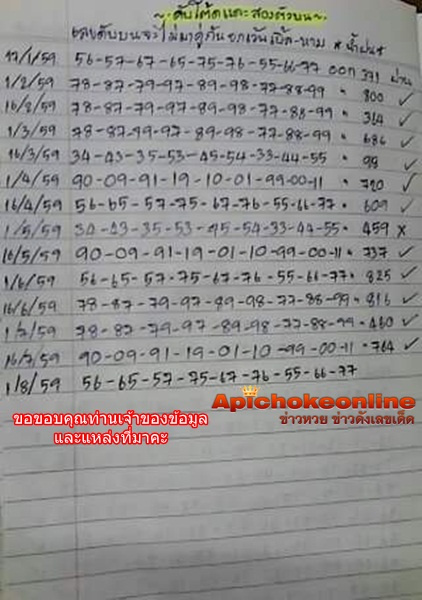 ดับโต๊ดและสองตัวบน
เลขดับบนจะไม่มาคู่กันยกเว้นเบิ้ล-หาม * น้ำฝน *
17/1/59 56-57-67-65-75-76-55-66-77 ออก 371 ผ่าน
1/2/59 78-87-79-97-89-98-77-88-99 * 800 ✓
16/2/59 78-87-79-97-89-98-77-88-99 * 364 ✓
1/3/59 78-87-79-97-89-98-77-88-99 * 686 ✓
16/3/59 34-43-35-53-45-54-33-44-55 *
1/4/59 90-09-91-19-10-01-99-00-11 * ✓
16/4/59 56-65-57-75-67-76-55-66-77 * 609 ✓
1/5/59 34-43-35-53-45-54-33-44-55 * 459 ×
16/5/59 90-09-91-19-01-10-99-00-11 * 737 ✓
1/6/59 56-65-57-75-67-76-55-66-77 * 825 ✓
16/6/59 78-87-79-97-89-98-77-88-99 * 816 ✓
1/7/59 78-87-79-97-89-98-77-88-99 * 460 ✓
16/7/59 90-09-91-19-01-10-99-00-11 * 764 ✓
1/8/59 56-65-57-75-67-76-55-66-77
Apichokeonline
ข่าวหวย ข่าวดังเลขเด็ด
ขอขอบคุณท่านเจ้าของข้อมูล
และแหล่งที่มาคะ